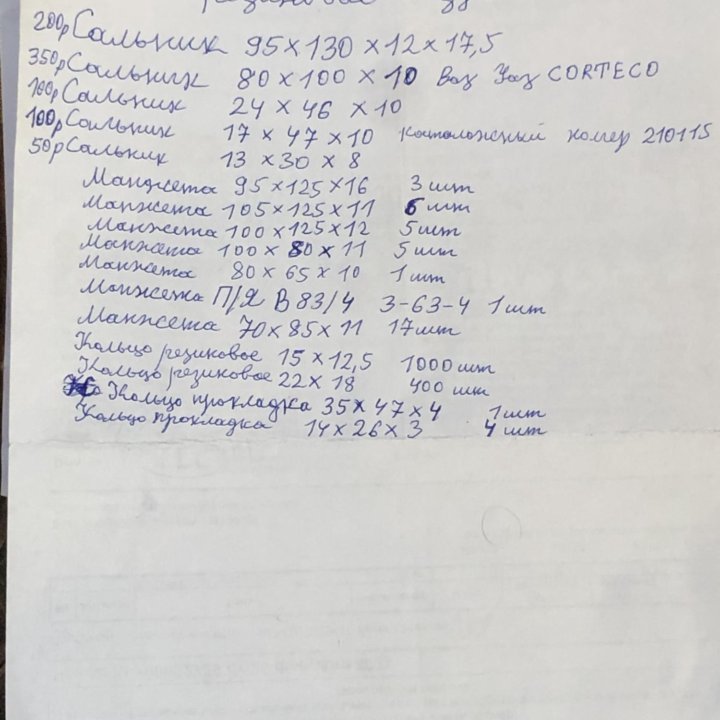 резиновое
200р Сальник 95×130×12×17,5
350р Сальник 80×100×10 Ваз Уаз CORTECO
100р Сальник 24×46×10
100р Сальник 17×47×10 каталожный номер 210115
50р Сальник 13×30×8
Манжета 95×125×16 3 шт
Манжета 105×125×11 6 шт
Манжета 100×125×12 5 шт
Манжета 100×80×11 5 шт
Манжета 80×65×10 1 шт
Манжета П/Я В 83/4 3-63-4 1 шт
Манжета 70×85×11 17 шт
Кольцо резиковое 15×12,5 1000 шт
Кольцо резиковое 22×18 400 шт
Кольцо прокладка 35×47×4 1 шт
Кольцо прокладка 14×26×3 4 шт